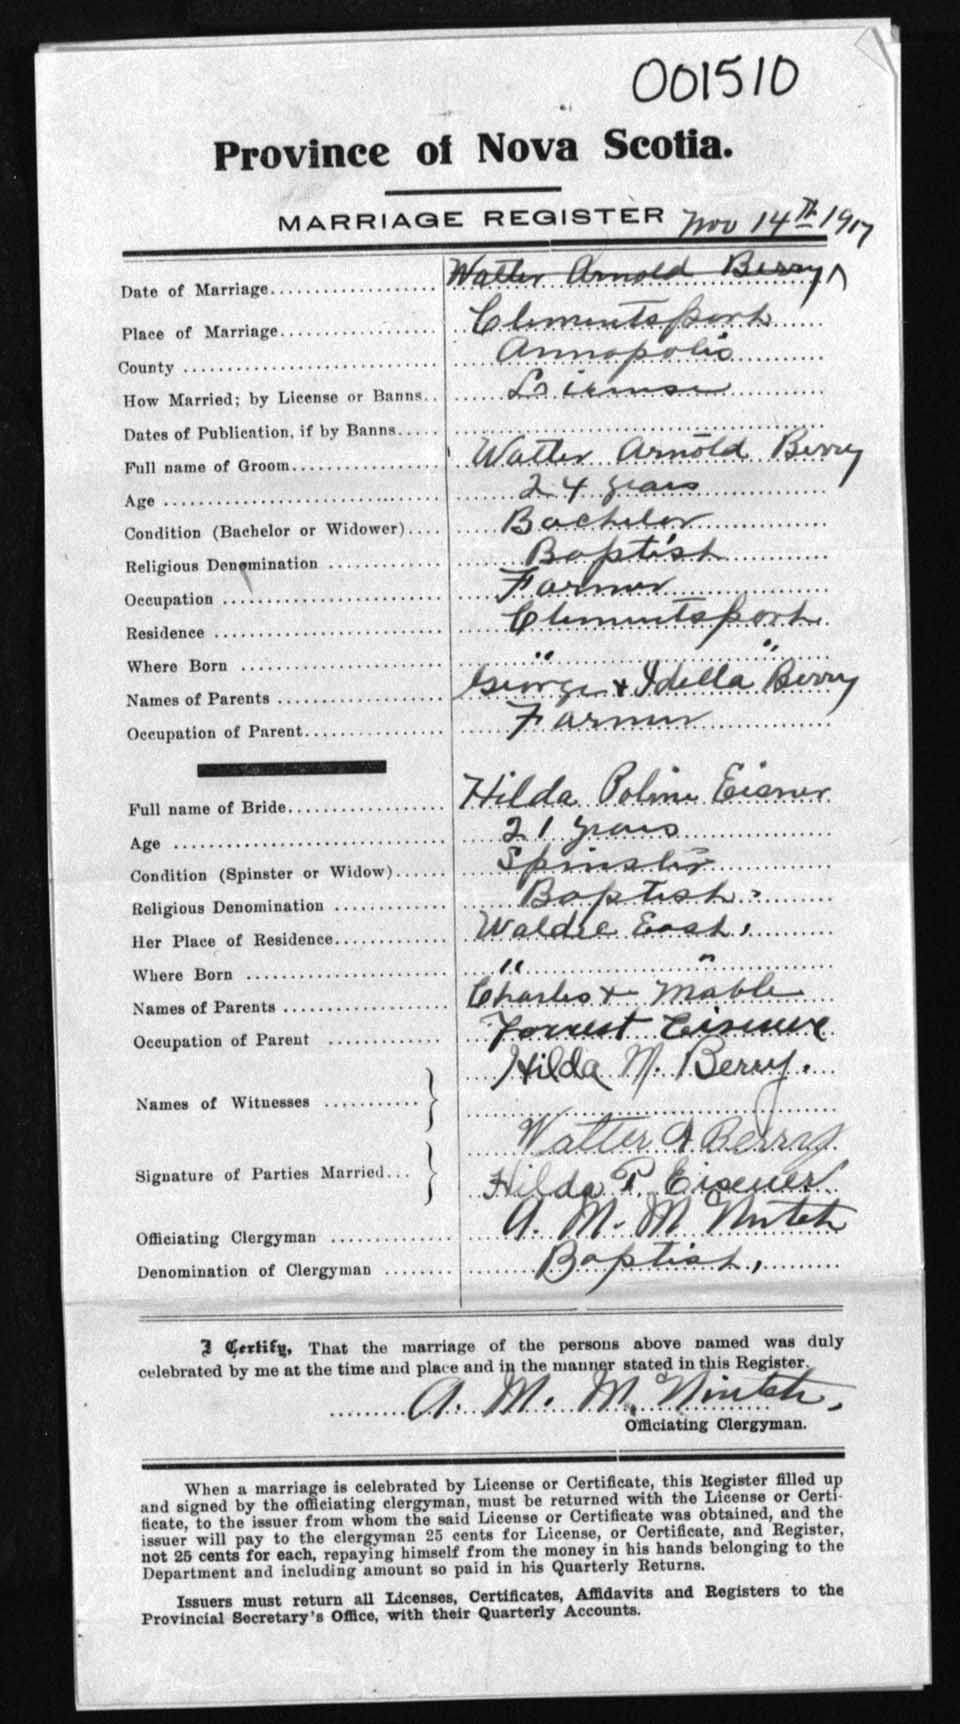 001510
Province of Nova Scotia.
MARRIAGE REGISTER Nov 14th 1917
Date of Marriage.................... Walter Arnold Berry
Place of Marriage.................. Clementsport
County ............................. Annapolis
How Married; by License or Banns.. License
Dates of Publication, if by Banns.....
Full name of Groom................. Walter Arnold Berry
Age ............................... 24 years
Condition (Bachelor or Widower).... Bachelor
Religious Denomination ............ Baptist
Occupation ........................ Farmer
Residence ......................... Clementsport
Where Born ........................ " "
Names of Parents .................. George & Idella Berry
Occupation of Parent............... Farmer
Full name of Bride................. Hilda Poline Eisner
Age ............................... 21 years
Condition (Spinster or Widow)...... Spinster
Religious Denomination ............ Baptist
Her Place of Residence............. Waldec East,
Where Born ........................ " "
Names of Parents .................. Charles & Mable
Occupation of Parent .............. Forrest Eisener
Hilda M. Berry.
Names of Witnesses ...........
Walter A Berry
Signature of Parties Married...
Hilda P. Eisener
Officiating Clergyman ............. A. M. McNintch
Denomination of Clergyman ........ Baptist,
I Certify, That the marriage of the persons above named was duly
celebrated by me at the time and place and in the manner stated in this Register.
A. M. McNintch,
Officiating Clergyman.
When a marriage is celebrated by License or Certificate, this Register filled up
and signed by the officiating clergyman, must be returned with the License or Certi-
ficate, to the issuer from whom the said License or Certificate was obtained, and the
issuer will pay to the clergyman 25 cents for License, or Certificate, and Register,
not 25 cents for each, repaying himself from the money in his hands belonging to the
Department and including amount so paid in his Quarterly Returns.
Issuers must return all Licenses, Certificates, Affidavits and Registers to the
Provincial Secretary's Office, with their Quarterly Accounts.